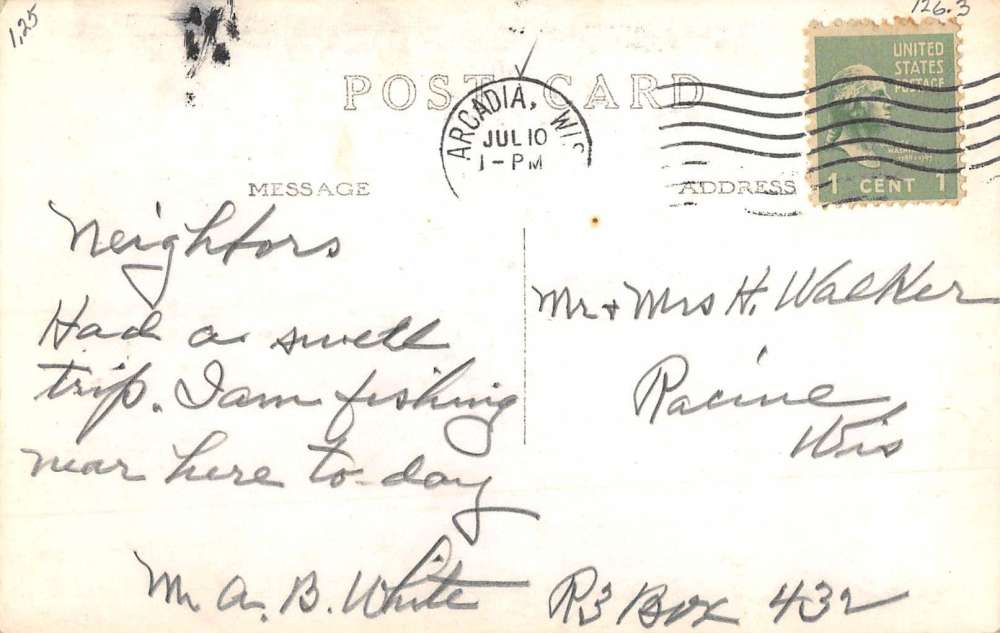 1.25
126.3
POST CARD
ARCADIA, WIS
JUL 10
1-PM
UNITED
STATES
POSTAGE
1 CENT 1
MESSAGE
ADDRESS
Neighbors
Had a swell
trip. I am fishing
near here to-day
Mr A. B. White
Mr + Mrs H. Walker
Racine
Wis
R3 Box 432